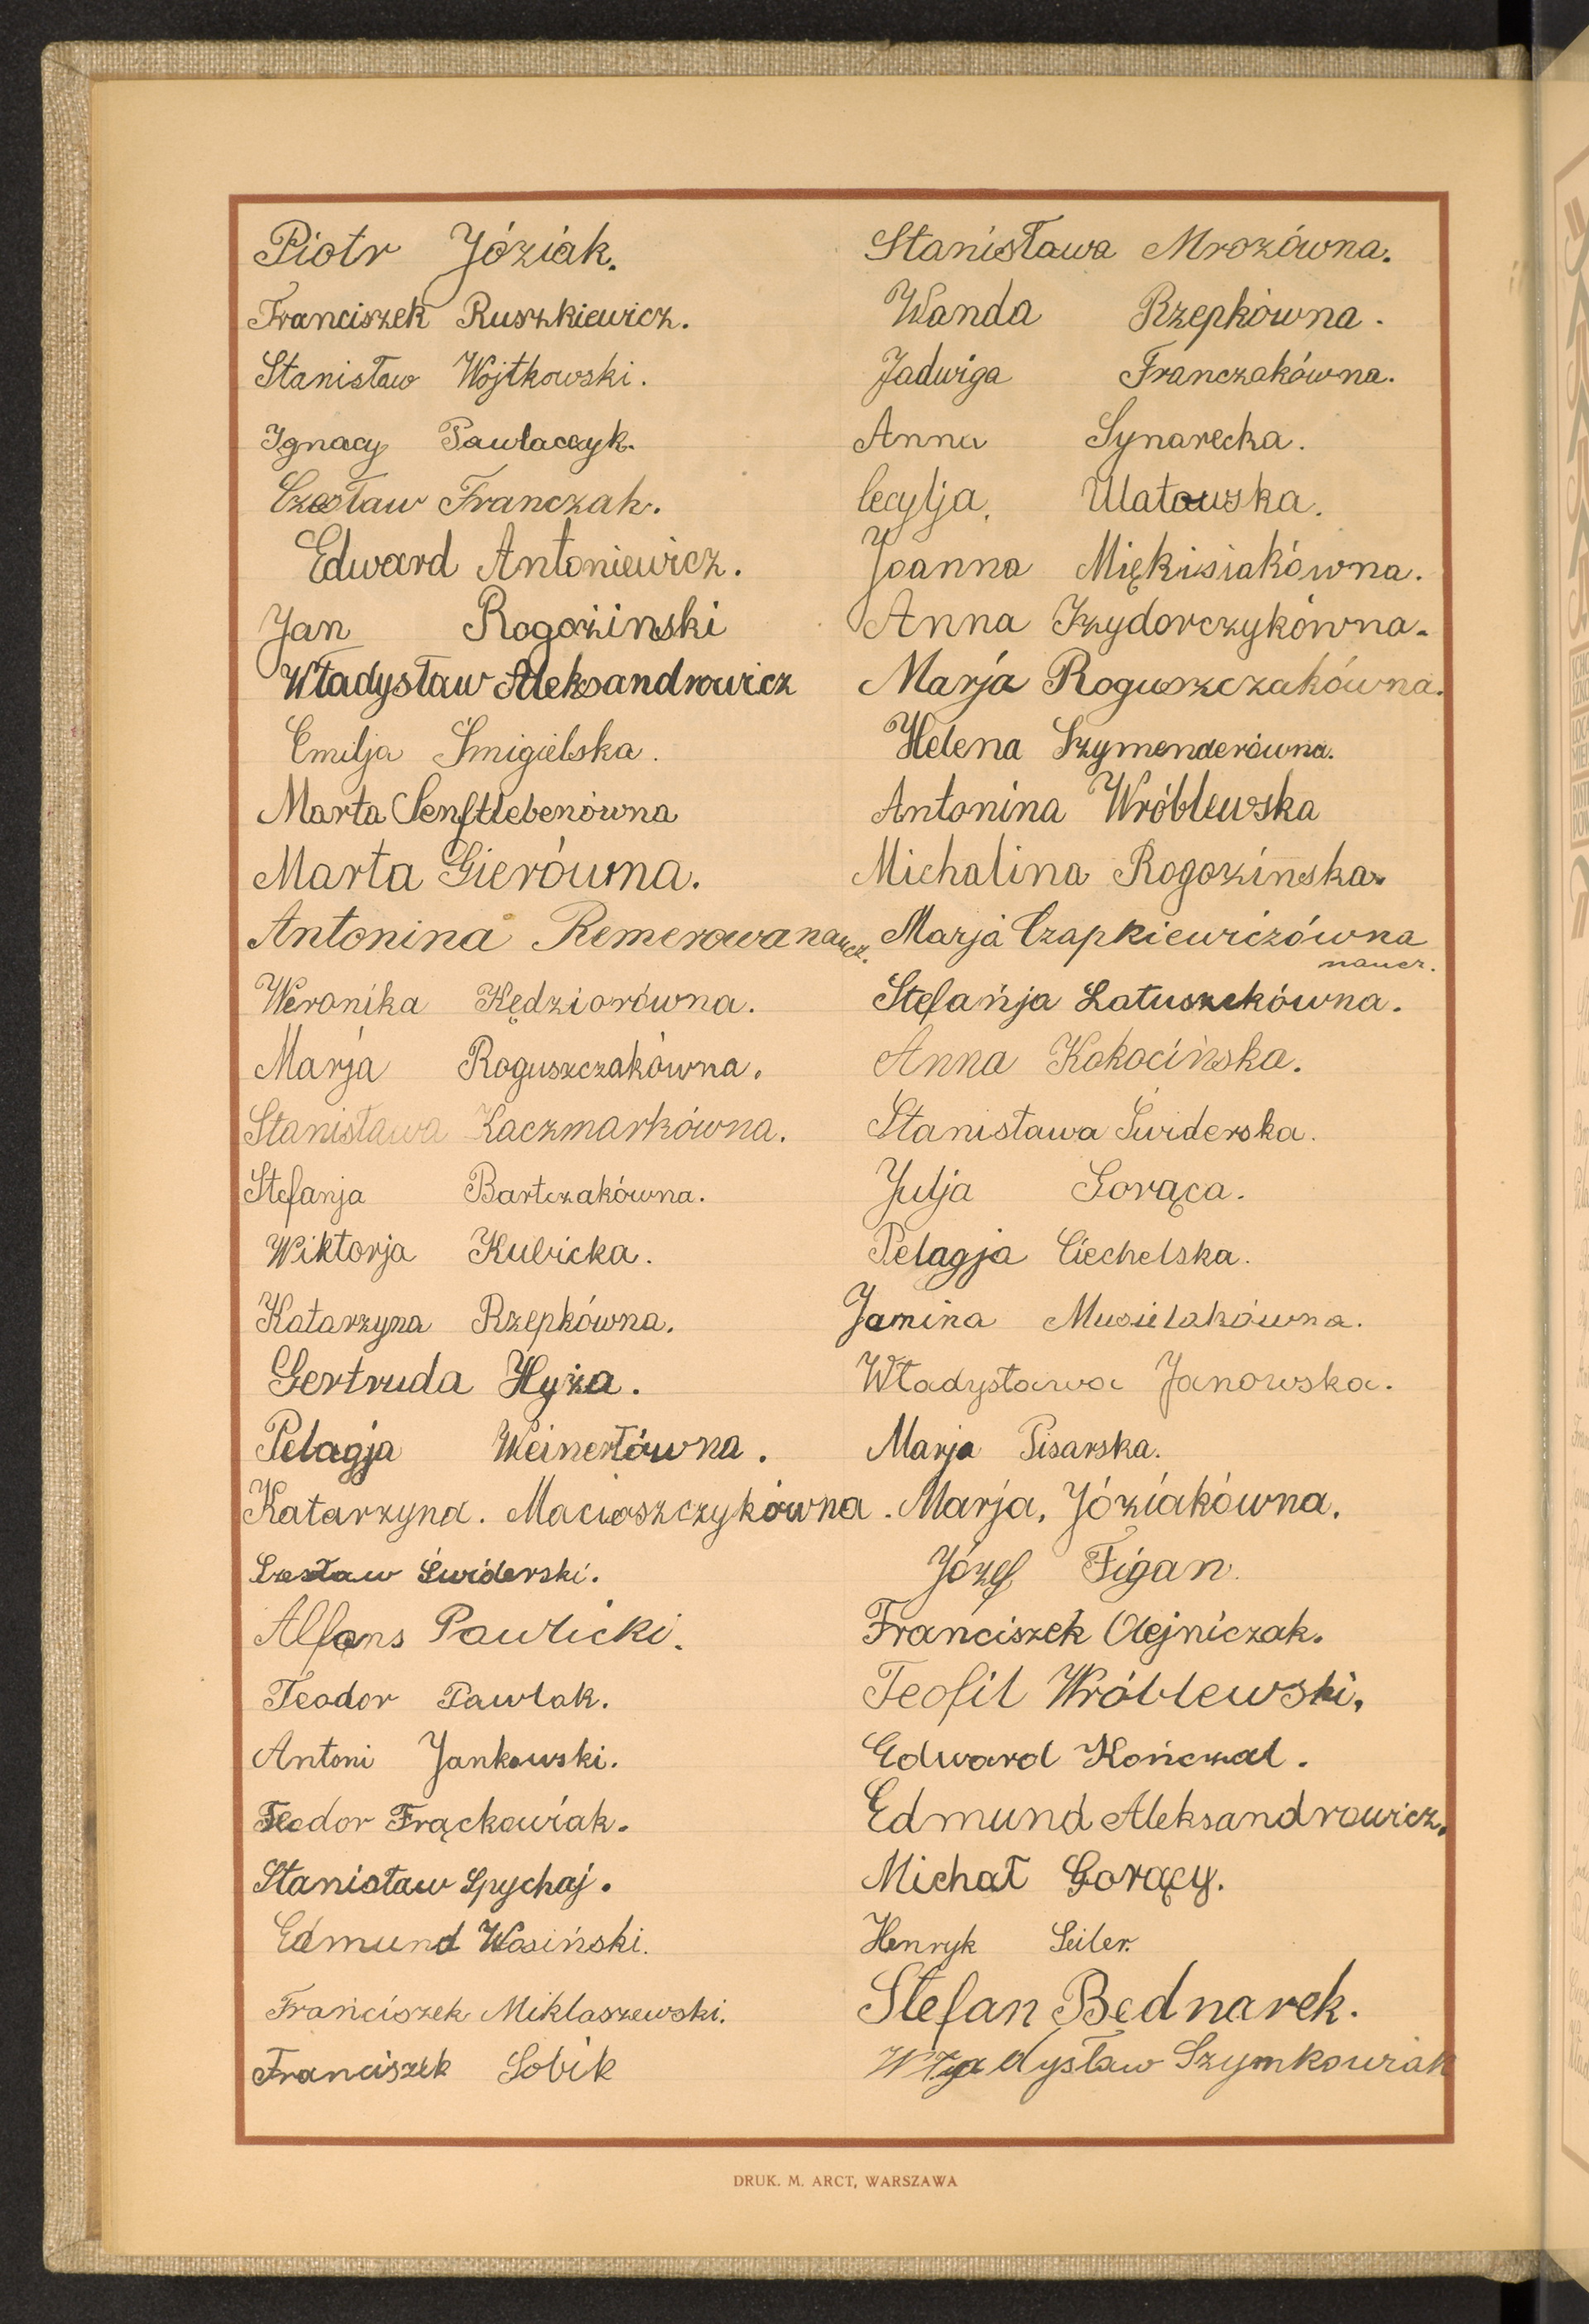 Piotr Józiak.
Franciszek Ruszkiewicz.
Stanisław Wojtkowski.
Ignacy Pawlaczyk.
Czesław Franczak.
Edward Antoniewicz.
Jan Rogoziński
Władysław Aleksandrowicz
Emilja Śmigielska.
Marta Senftlebenówna
Marta Gierówna.
Antonina Remerowa naucz.
Weronika Kędziorówna.
Marja Roguszczakówna.
Stanisława Kaczmarkówna.
Stefanja Bartczakówna.
Wiktorja Kubicka.
Katarzyna Rzepkówna.
Gertruda Hyża.
Pelagja Weinertówna.
Katarzyna. Maciaszczykówna.
Czesław Świderski.
Alfons Pawlicki.
Teodor Pawlak.
Antoni Jankowski.
Teodor Frąckowiak.
Stanisław Spychaj.
Edmund Wosiński.
Franciszek Miklaszewski.
Franciszek Sobik
Stanisława Mrozówna.
Wanda Rzepkówna.
Jadwiga Franczakówna.
Anna Synarecka.
Cecylja. Ulatowska.
Joanna Miękisiakówna.
Anna Izydorczykówna.
Marja Roguszczakówna.
Helena Szymenderówna.
Antonina Wróblewska
Michalina Rogozińska.
Marja Czapkiewiczówna
naucz.
Stefanja Łatuszkówna.
Anna Kokocińska.
Stanisława Świderska.
Julja Gorąca.
Pelagja Ciechelska.
Janina Musielakówna.
Władysława Janowska.
Marja Pisarska.
Marja, Józiakówna.
Józef Figan.
Franciszek Olejniczak.
Teofil Wróblewski.
Edward Kończal.
Edmund Aleksandrowicz.
Michał Gorący.
Henryk Seiler.
Stefan Bednarek.
Władysław Szymkowiak
DRUK. M. ARCT, WARSZAWA